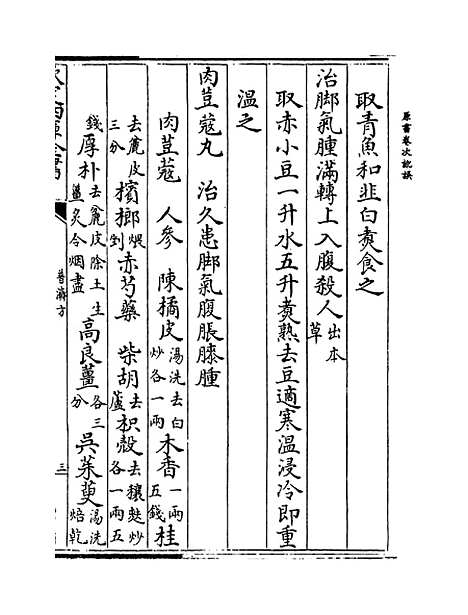 原書卷次訛誤
取青魚和韭白煑食之
治脚氣腫滿轉上入腹殺人出本草
取赤小豆一升水五升煑熟去豆適寒溫浸冷即重
溫之
肉荳蔻丸　治久患脚氣腹脹膝腫
肉荳蔻　人參　陳橘皮湯洗去白炒各一兩木香一兩五錢桂
去麄皮三分檳榔煨剉赤芍藥　柴胡去蘆枳殼去穰麩炒各一兩五
錢厚朴去麄皮除土生薑炙令烟盡高良薑各三分吳茱萸湯洗焙乾
普濟方
三